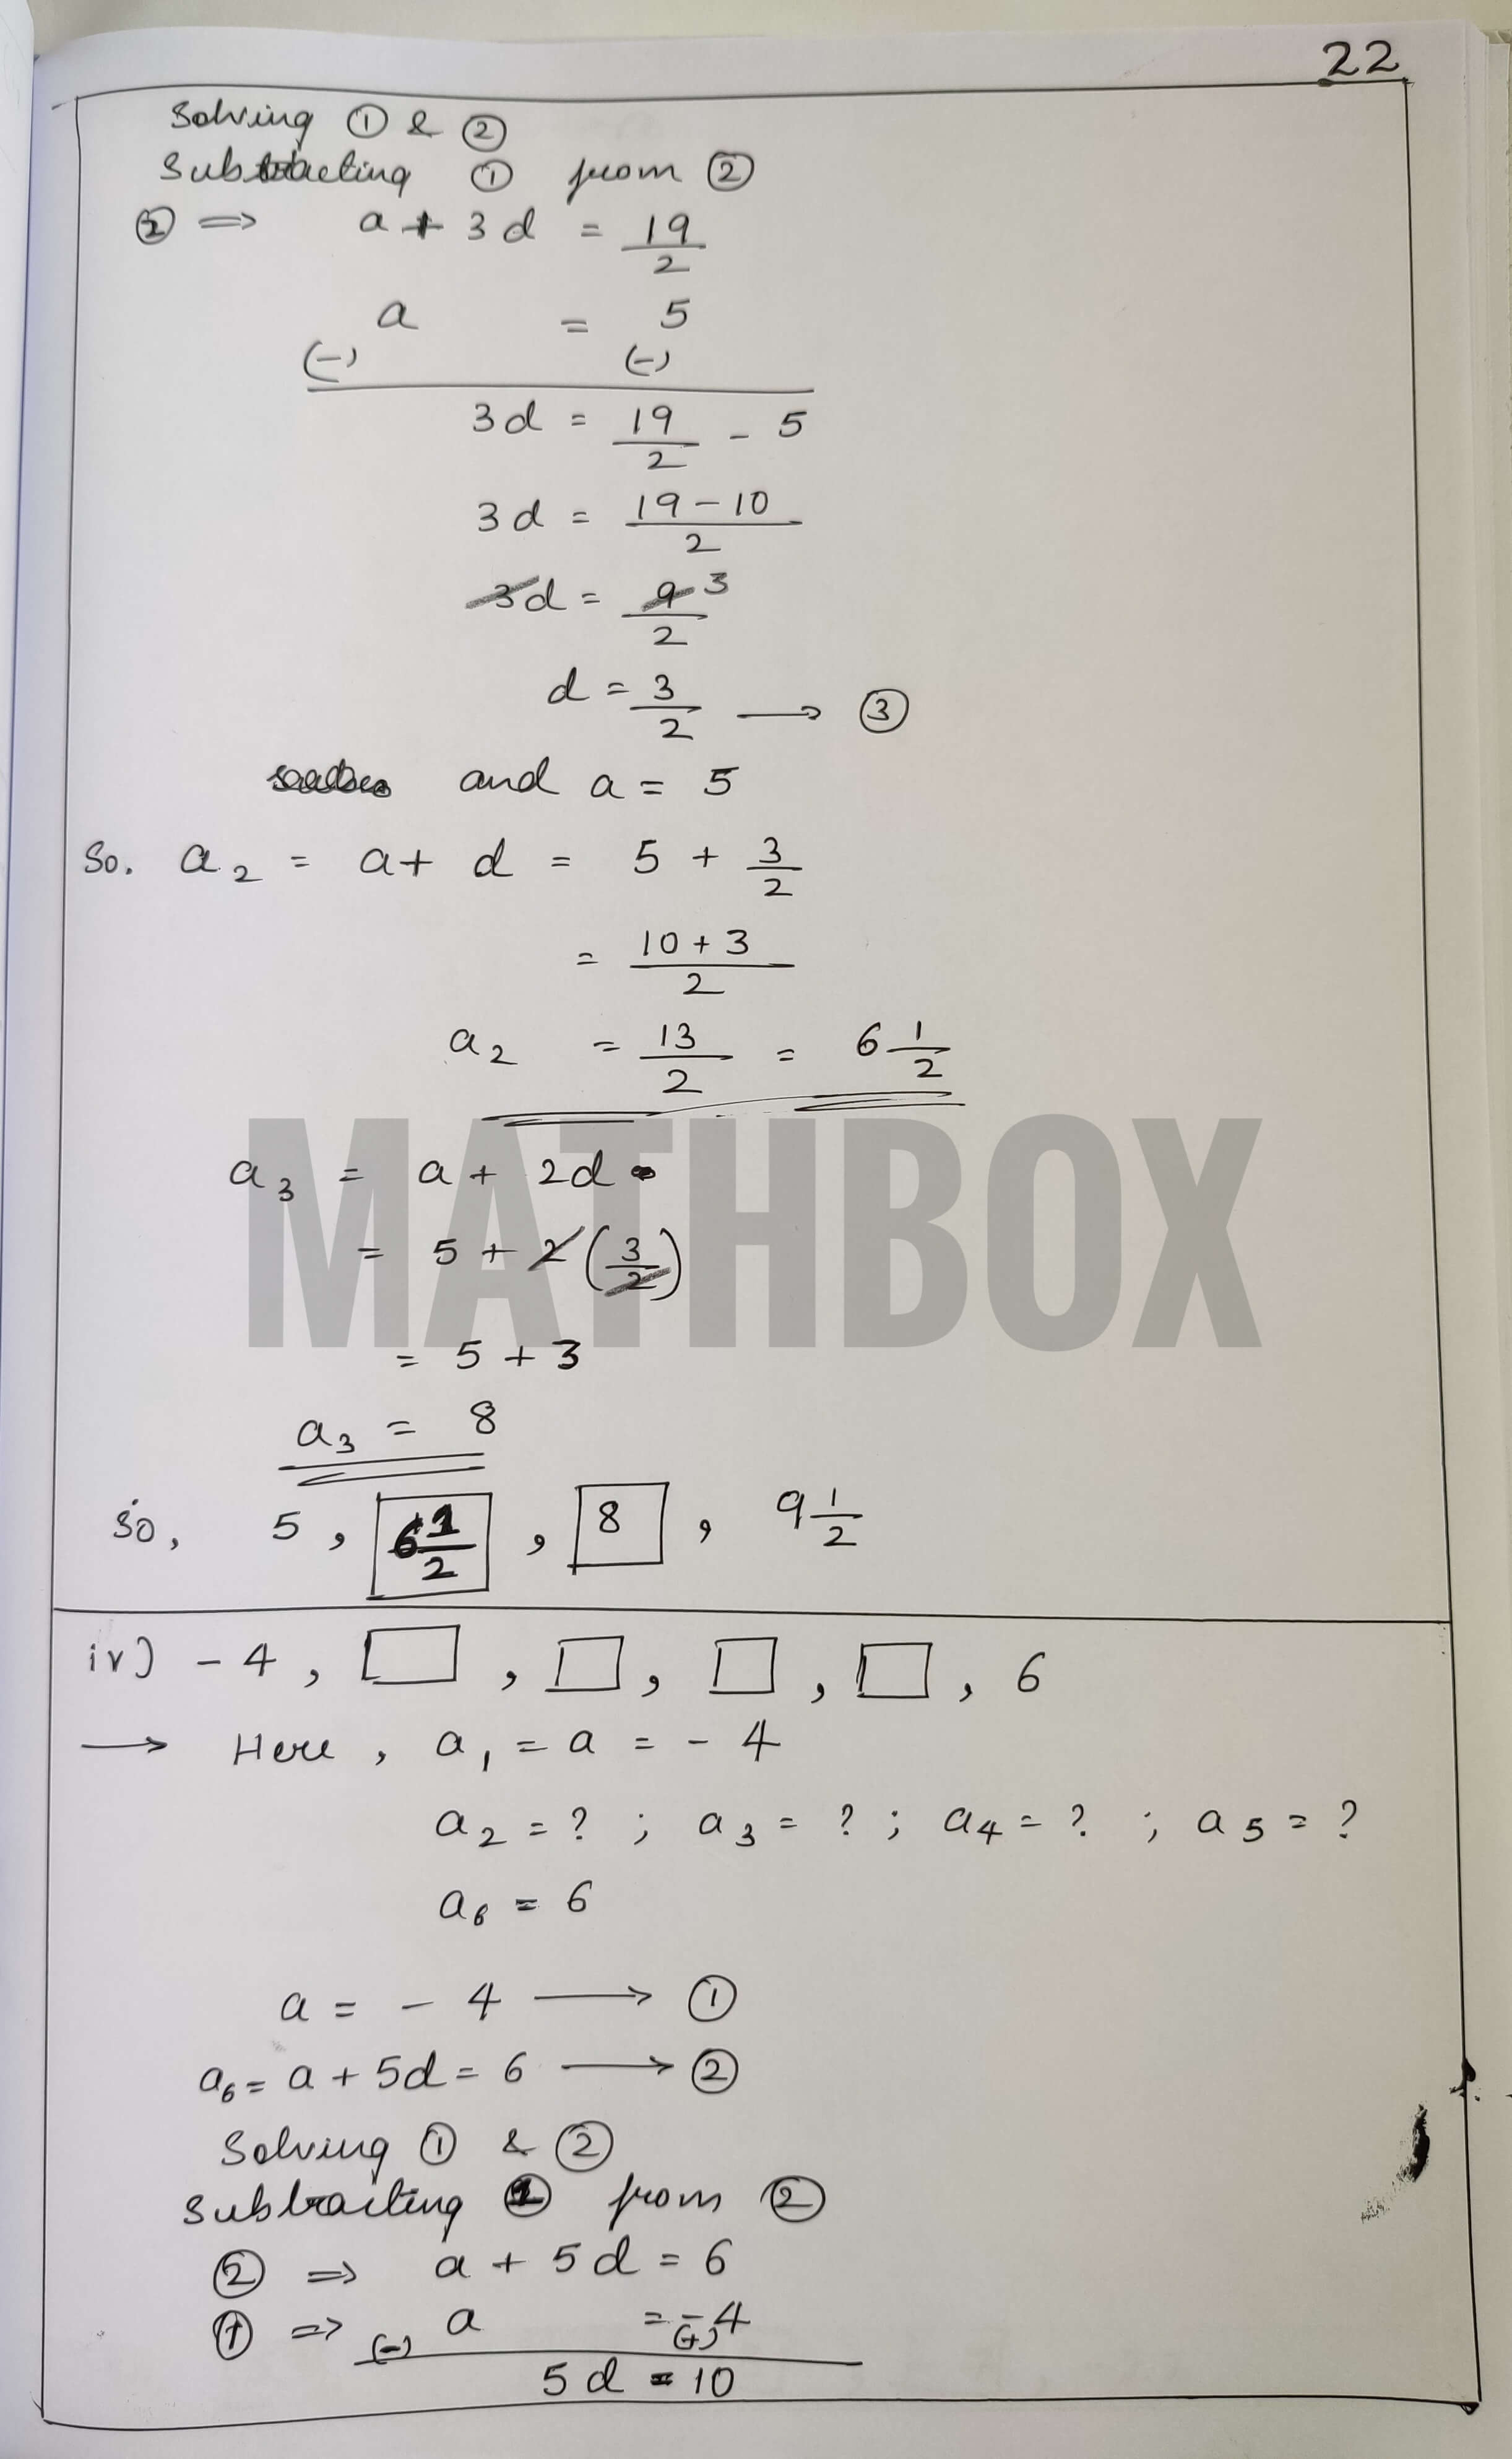 22
Solving ① & ②
Subtracting ① from ②
② ⇒ a + 3d = 19/2
a = 5
(-) (-)
3d = 19/2 - 5
3d = 19-10/2
3d = 9/2 3
d = 3/2 → ③
and a = 5
So. a2 = a + d = 5 + 3/2
= 10+3/2
a2 = 13/2 = 6 1/2
MATHBOX
a3 = a + 2d
= 5 + 2(3/2)
= 5 + 3
a3 = 8
So, 5, 6 1/2, 8, 9 1/2
iv) -4, □, □, □, □, 6
→ Here, a1 = a = -4
a2 = ? ; a3 = ? ; a4 = ? ; a5 = ?
a6 = 6
a = -4 → ①
a6 = a + 5d = 6 → ②
Solving ① & ②
Subtracting ① from ②
② ⇒ a + 5d = 6
① ⇒ a = -4
(-) (+)
5d = 10